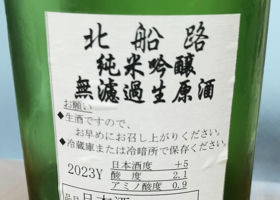 北船路
純米吟醸
無濾過生原酒
お願い
◆生酒ですので、
お早めにお召し上がりください。
◆冷蔵庫または冷暗所で保存ください。
2023Y 日本酒度 +5
酸度 2.1
アミノ酸度 0.9
品目 日本酒